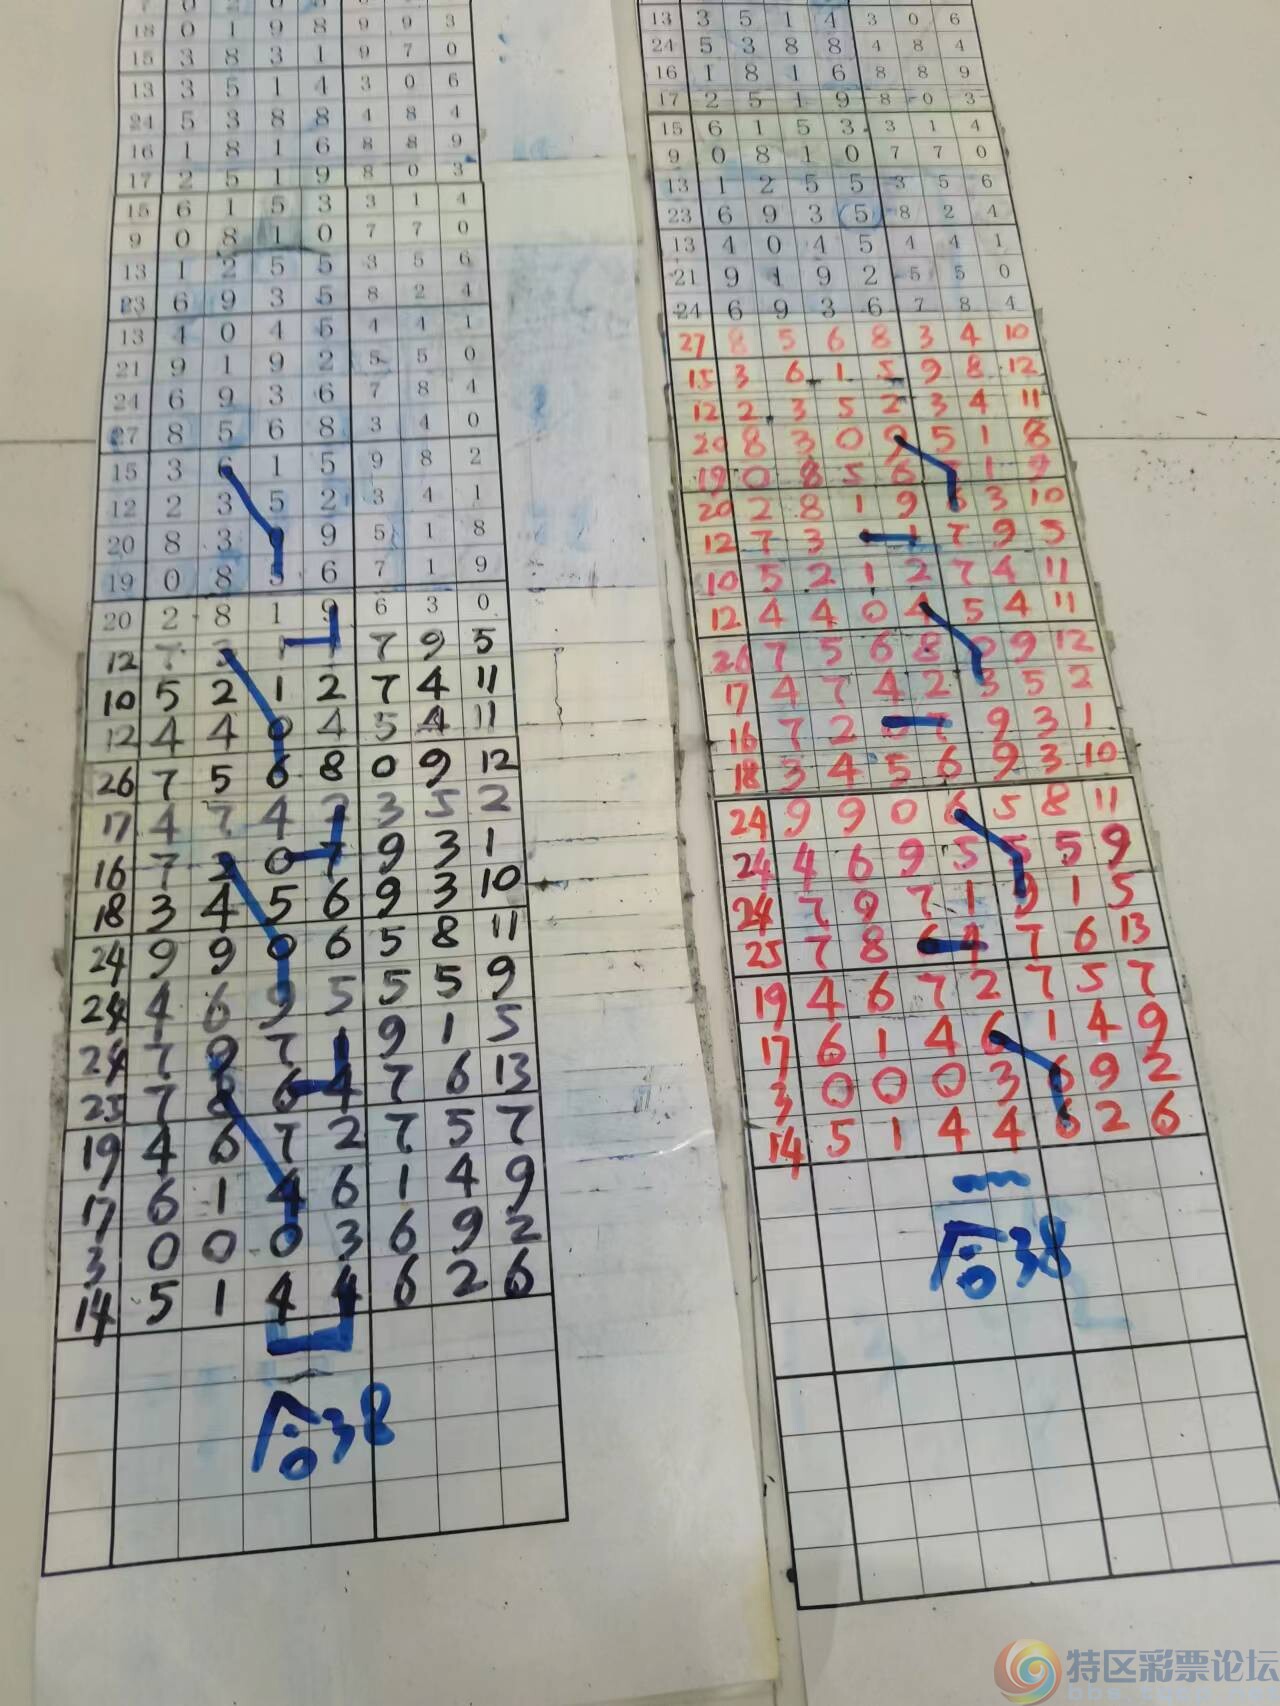 18 0 1 9 8 9 9 3
15 3 8 3 1 9 7 0
13 3 5 1 4 3 0 6
24 5 3 8 8 4 8 4
16 1 8 1 6 8 8 9
17 2 5 1 9 8 0 3
15 6 1 5 3 3 1 4
9 0 8 1 0 7 7 0
13 1 2 5 5 3 5 6
23 6 9 3 5 8 2 4
13 4 0 4 5 4 4 1
21 9 1 9 2 5 5 0
24 6 9 3 6 7 8 4
27 8 5 6 8 3 4 0
15 3 6 1 5 9 8 2
12 2 3 5 2 3 4 1
20 8 3 9 5 1 8
19 0 8 5 6 7 1 9
20 2 8 1 9 6 3 0
12 7 3 1 1 7 9 5
10 5 2 1 2 7 4 11
12 4 4 0 4 5 4 11
26 7 5 6 8 0 9 12
17 4 7 4 2 3 5 2
16 7 2 0 7 9 3 1
18 3 4 5 6 9 3 10
24 9 9 0 6 5 8 11
24 4 6 9 5 5 5 9
24 7 9 7 1 9 1 5
25 7 8 6 4 7 6 13
19 4 6 7 2 7 5 7
17 6 1 4 6 1 4 9
3 0 0 0 3 6 9 2
14 5 1 4 4 6 2 6
合38
13 3 5 1 4 3 0 6
24 5 3 8 8 4 8 4
16 1 8 1 6 8 8 9
17 2 5 1 9 8 0 3
15 6 1 5 3 3 1 4
9 0 8 1 0 7 7 0
13 1 2 5 5 3 5 6
23 6 9 3 5 8 2 4
13 4 0 4 5 4 4 1
21 9 1 9 2 5 5 0
24 6 9 3 6 7 8 4
27 8 5 6 8 3 4 10
15 3 6 1 5 9 8 12
12 2 3 5 2 3 4 11
20 8 3 0 9 5 1 8
19 0 8 5 6 7 1 9
20 2 8 1 9 6 3 10
12 7 3 1 7 9 5
10 5 2 1 2 7 4 11
12 4 4 0 4 5 4 11
26 7 5 6 8 0 9 12
17 4 7 4 2 3 5 2
16 7 2 0 7 9 3 1
18 3 4 5 6 9 3 10
24 9 9 0 6 5 8 11
24 4 6 9 5 5 5 9
24 7 9 7 1 9 1 5
25 7 8 6 4 7 6 13
19 4 6 7 2 7 5 7
17 6 1 4 6 1 4 9
3 0 0 0 3 6 9 2
14 5 1 4 4 6 2 6
合38
特区彩票论坛